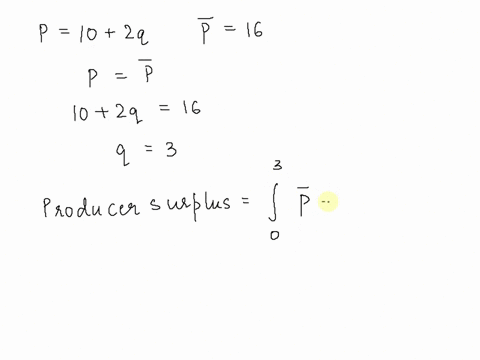 P = 10 + 2q   P̅ = 16
P = P̅
10 + 2q = 16
q = 3
Producer surplus = ∫₀³ P̅ -